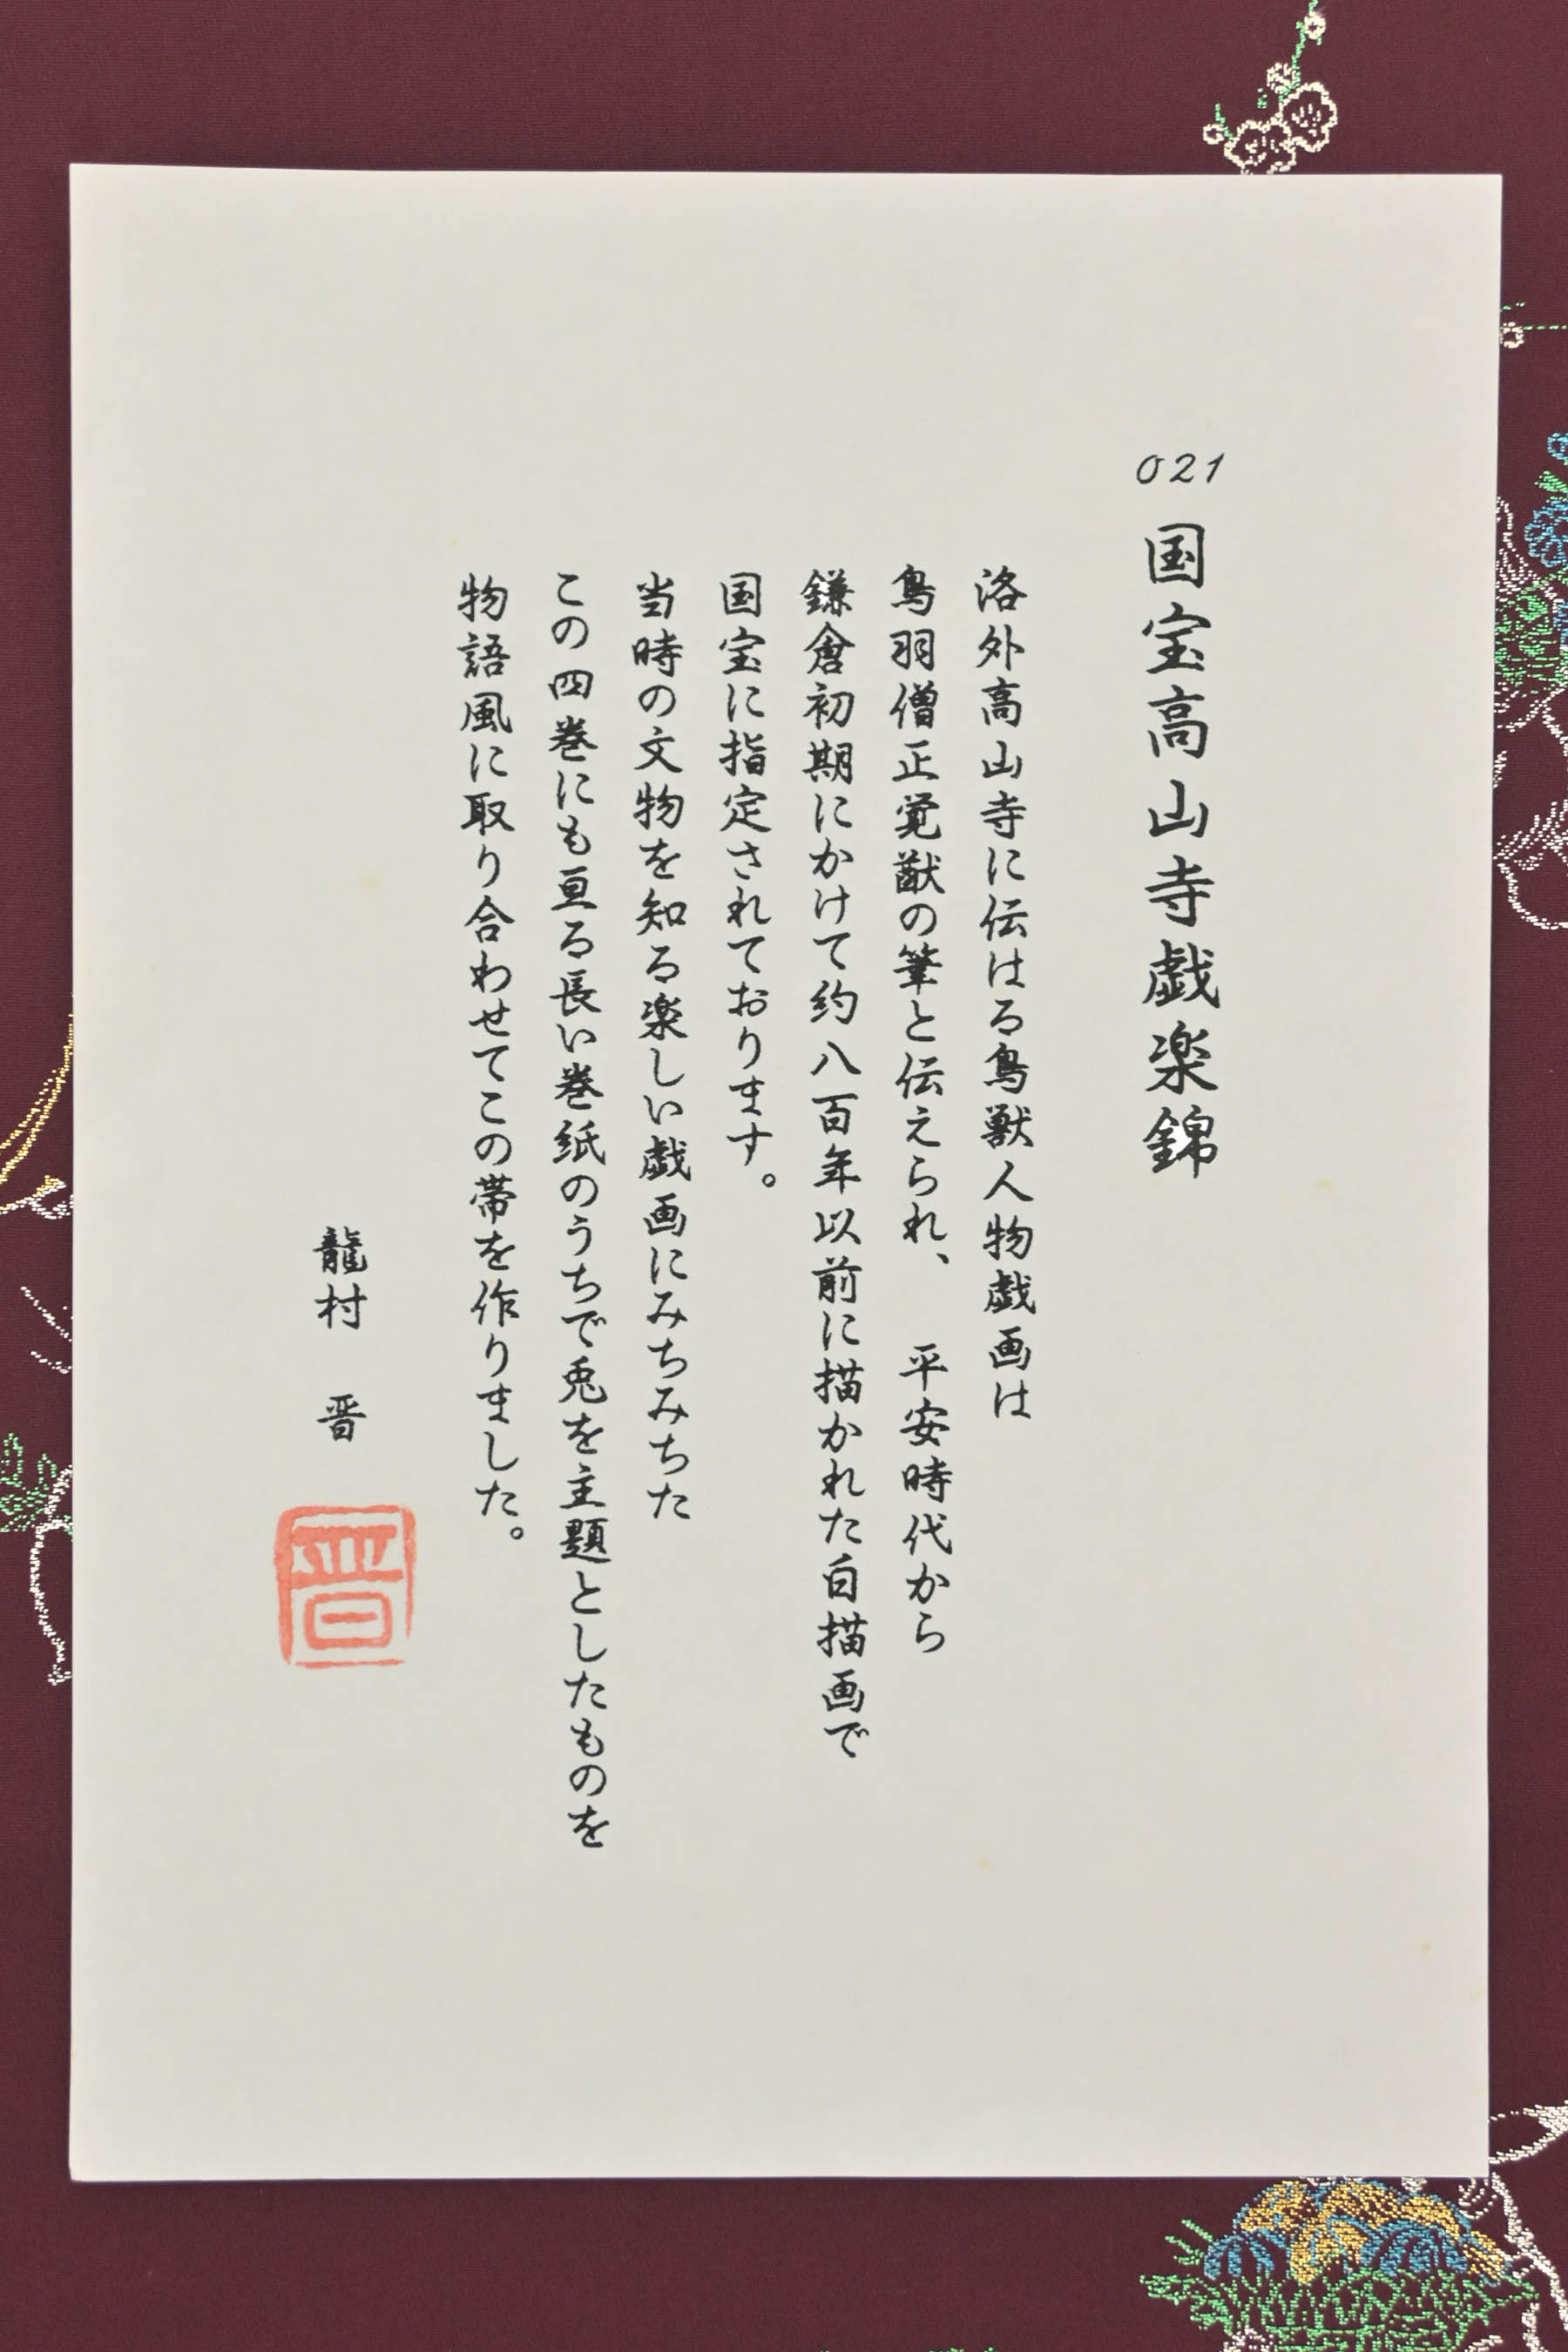 021 国宝高山寺戯楽錦
洛外高山寺に伝はる鳥獣人物戯画は
鳥羽僧正覚猷の筆と伝えられ、　平安時代から
鎌倉初期にかけて約八百年以前に描かれた白描画で
国宝に指定されております。
当時の文物を知る楽しい戯画にみちみちた
この四巻にも亘る長い巻紙のうちで兎を主題としたものを
物語風に取り合わせてこの帯を作りました。
龍村　晋
晋